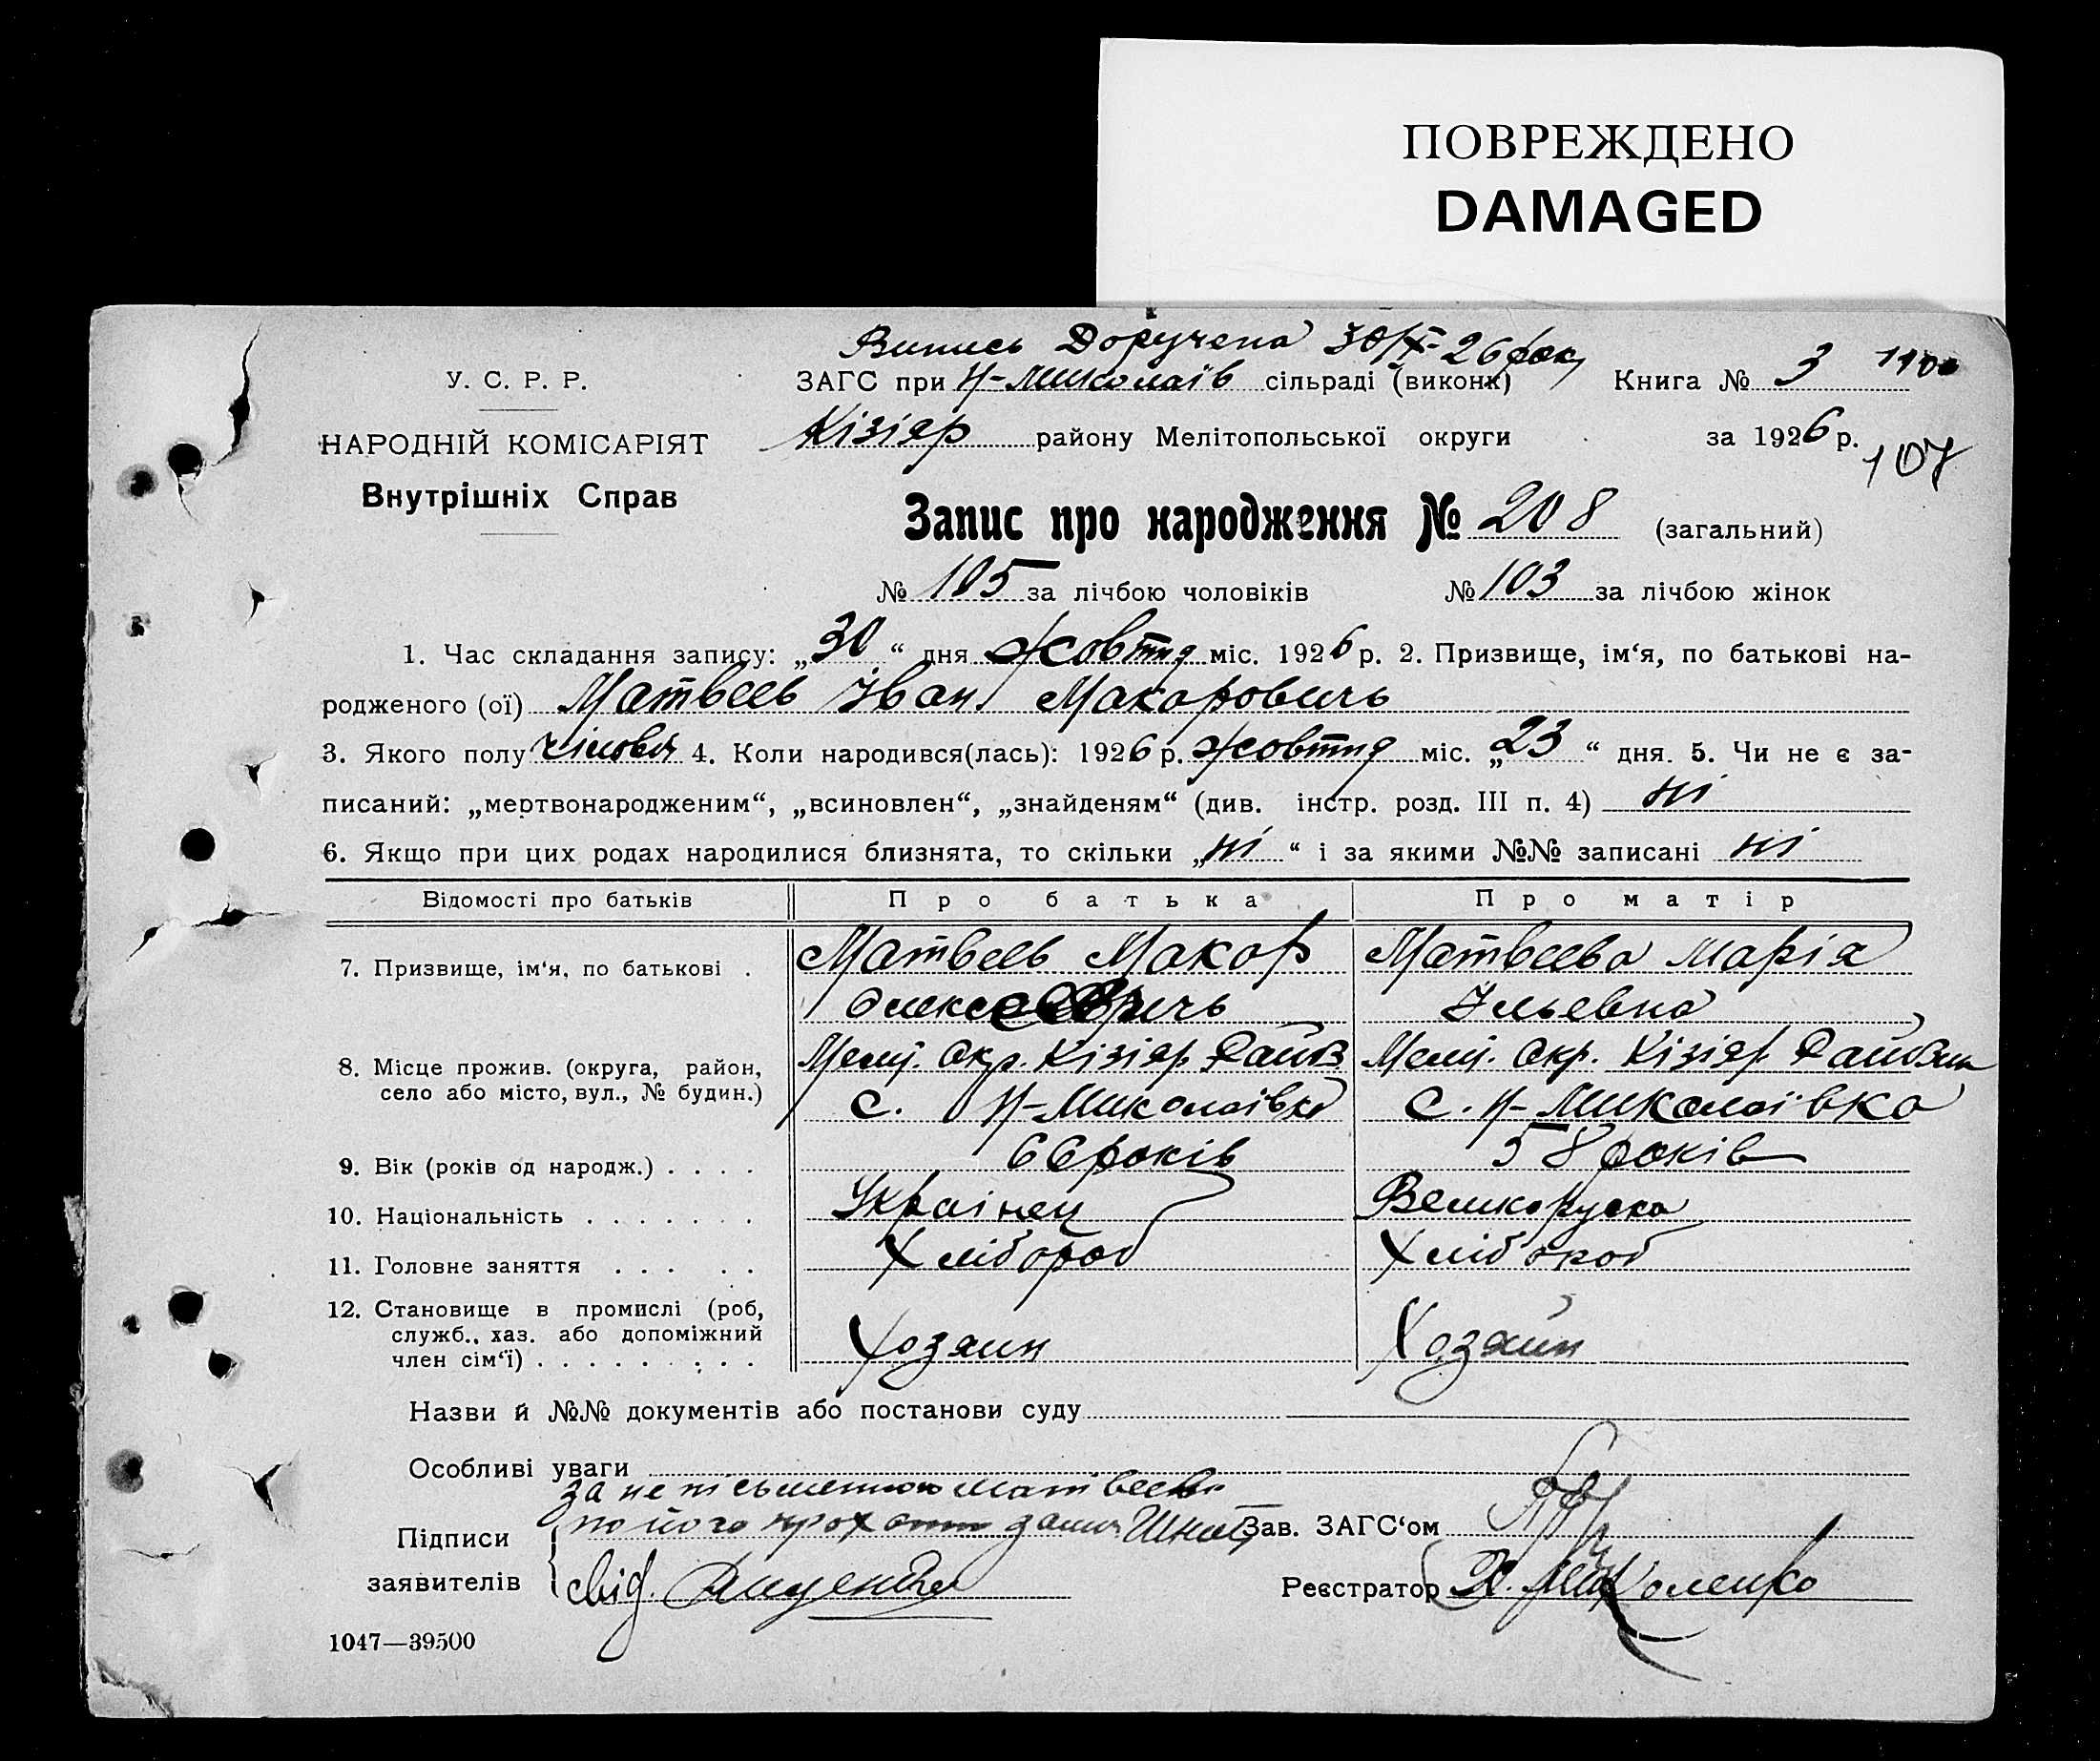 ПОВРЕЖДЕНО
DAMAGED
Випись Доручена 30/X-26 року
У. С. Р. Р.
ЗАГС при Н-Миколаїв сільраді (виконк) Книга № 3
Кізіяр району Мелітопольської округи за 1926 р.
107
НАРОДНІЙ КОМІСАРІЯТ
Внутрішніх Справ
Запис про народження № 208 (загальний)
№ 105 за лічбою чоловіків № 103 за лічбою жінок
1. Час складання запису: „30“ дня жовтня міс. 1926 р. 2. Призвище, ім‘я, по батькові на-
родженого (ої) Матвеев Іван Макаровичь
3. Якого полу чіловіч 4. Коли народився(лась): 1926 р. жовтня міс. „23“ дня. 5. Чи не є за-
писаний: „мертвонародженим“, „всиновлен“, „знайденям“ (див. інстр. розд. III п. 4) ні
6. Якщо при цих родах народилися близнята, то скільки „ні“ і за якими №№ записані ні
Відомості про батьків Про батька Про матір
7. Призвище, ім‘я, по батькові . Матвеев Макар Матвеева Марія
Ильевна
8. Місце прожив. (округа, район, Меліт. Окр. Кізіяр Району Меліт. Окр. Кізіяр Району
село або місто, вул., № будин.) с. Н-Миколаівка с. Н-Миколаівка
9. Вік (років од народж.) . . . . 66 років 58 років
10. Національність . . . . . . . Украінец Великоруска
11. Головне заняття . . . . . Хлібороб Хлібороб
12. Становище в промислі (роб,
служб., хаз. або допоміжний
член сім‘ї) . . . . . . . . Хозяин Хозяин
Назви й №№ документів або постанови суду
Особливі уваги
за неписьменного Матвеева
по його
Підписи
заявителів
Зав. ЗАГС‘ом
Реєстратор Миколенко
1047—39500